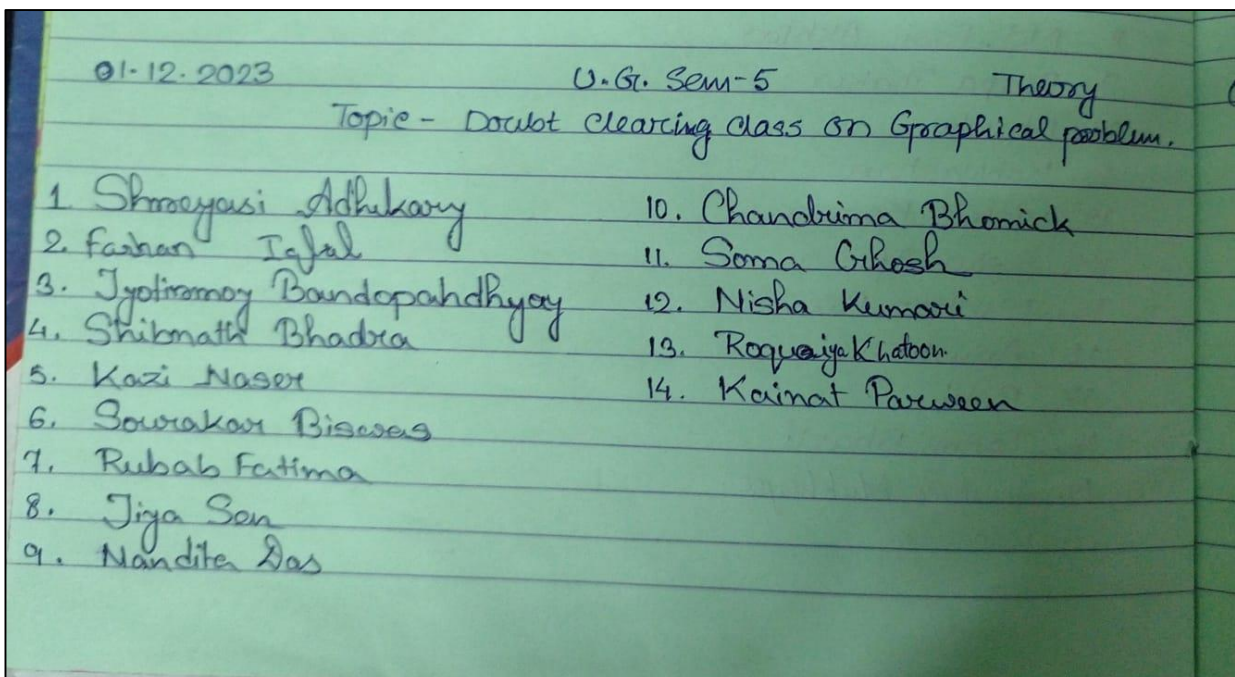 01-12-2023 U.G. Sem-5 Theory
Topic - Doubt Clearing class on Graphical problem.
1 Shreyasi Adhikary
2. Farhan Iqbal
3. Jyotirmoy Bandopahdhyay
4. Shibnath Bhadra
5. Kazi Naser
6. Sourakar Biswas
7. Rubab Fatima
8. Jiya Sen
9. Nandita Das
10. Chandrima Bhomick
11. Soma Ghosh
12. Nisha Kumari
13. Roquaiya Khatoon.
14. Kainat Parween